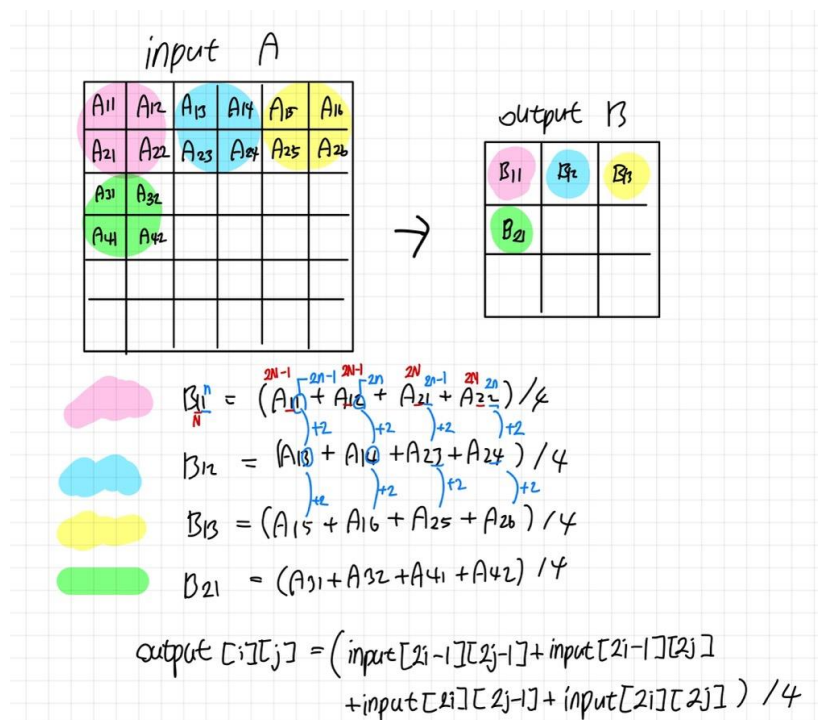 input A
A11 A12 A13 A14 A15 A16
A21 A22 A23 A24 A25 A26
A31 A32
A41 A42
output B
B11 B12 B13
B21
→
2N-1 2n-1 2N-1 2n 2N 2n-1 2N 2n
B11 = (A11 + A12 + A21 + A22) /4
n
N
+2 +2 +2 +2
B12 = (A13 + A14 + A23 + A24) /4
+2 +2 +2 +2
B13 = (A15 + A16 + A25 + A26) /4
B21 = (A31 + A32 + A41 + A42) /4
output [i][j] = (input[2i-1][2j-1] + input[2i-1][2j]
+input[2i][2j-1] + input[2i][2j]) /4